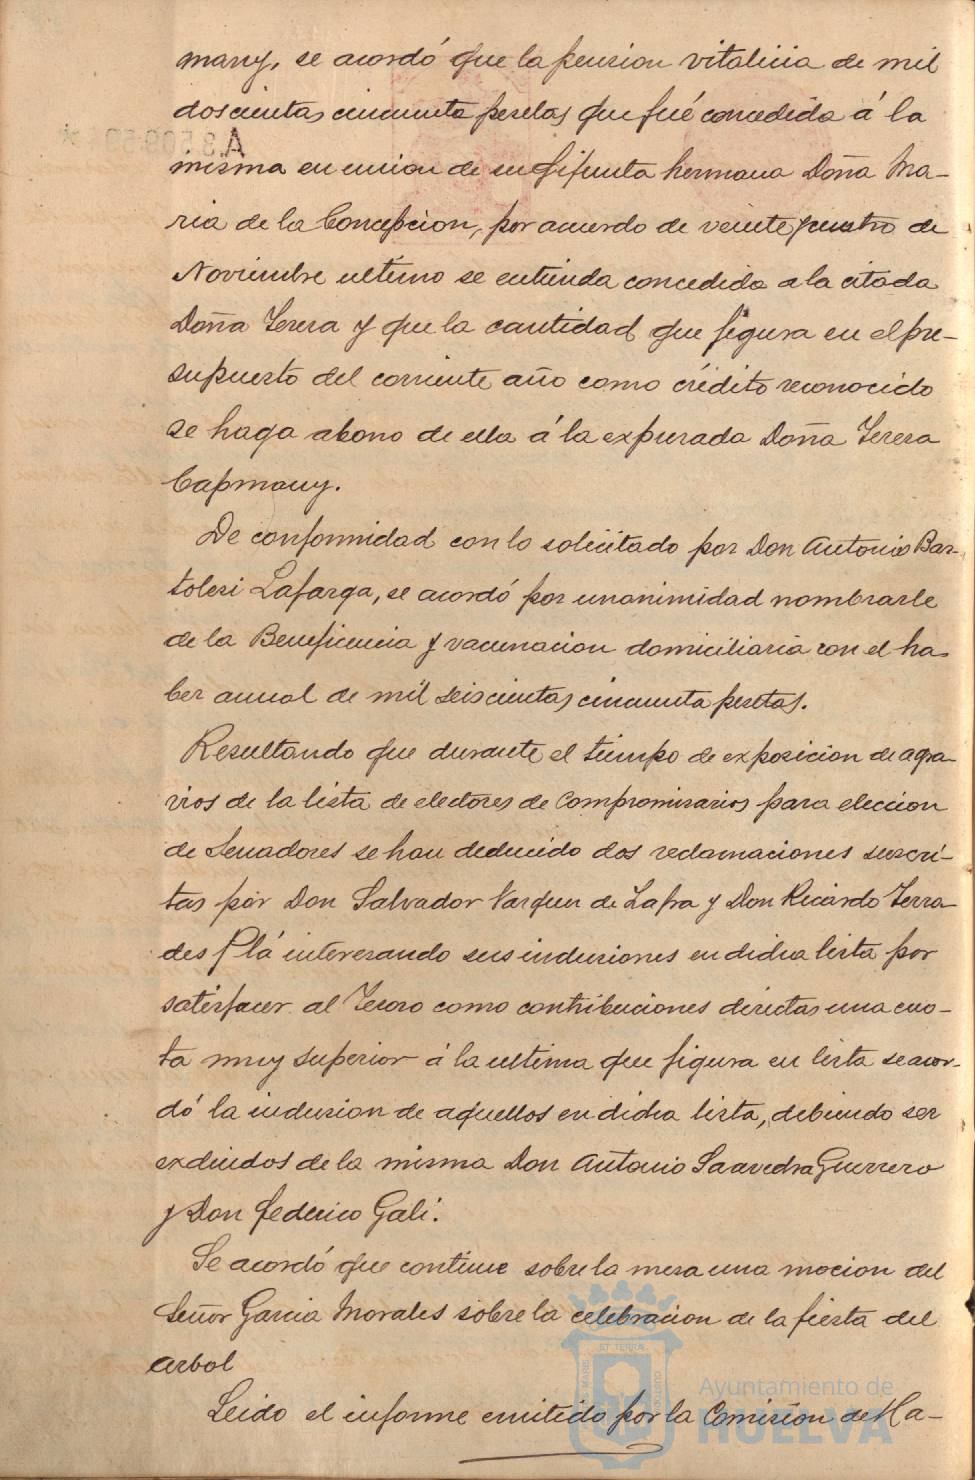 many, se acordó que la pension vitalicia de mil
doscientas cincuenta pesetas que fué concedida á la
misma en union de su difunta hermana Doña Ma-
ria de la Concepcion, por acuerdo de veinte y cuatro de
Noviembre ultimo se entienda concedida a la citada
Doña Teresa y que la cantidad que figura en el pre-
supuesto del corriente año como crédito reconocido
se haga abono de ella á la expresada Doña Teresa
Capmany.
De conformidad con lo solicitado por Don Antonio Bar-
tolesi Lafarga, se acordó por unanimidad nombrarle
de la Beneficencia y vacunacion domiciliaria con el ha-
ber anual de mil seiscientas cincuenta pesetas.
Resultando que durante el tiempo de exposicion de agra-
vios de la lista de electores de Compromisarios para eleccion
de Senadores se han deducido dos reclamaciones suscri-
tas por Don Salvador Vazquez de Zafra y Don Ricardo Terra-
des Plá interesando sus inclusiones en dicha lista por
satisfacer al Tesoro como contribuciones directas una cuo-
ta muy superior á la ultima que figura en lista se acor-
dó la inclusion de aquellos en dicha lista, debiendo ser
excluidos de la misma Don Antonio Saavedra Guerrero
y Don Federico Gali.
Se acordó que continue sobre la mesa una mocion del
Señor Garcia Morales sobre la celebracion de la fiesta del
arbol
Leido el informe emitido por la Comision de Ha-
Ayuntamiento de
HUELVA